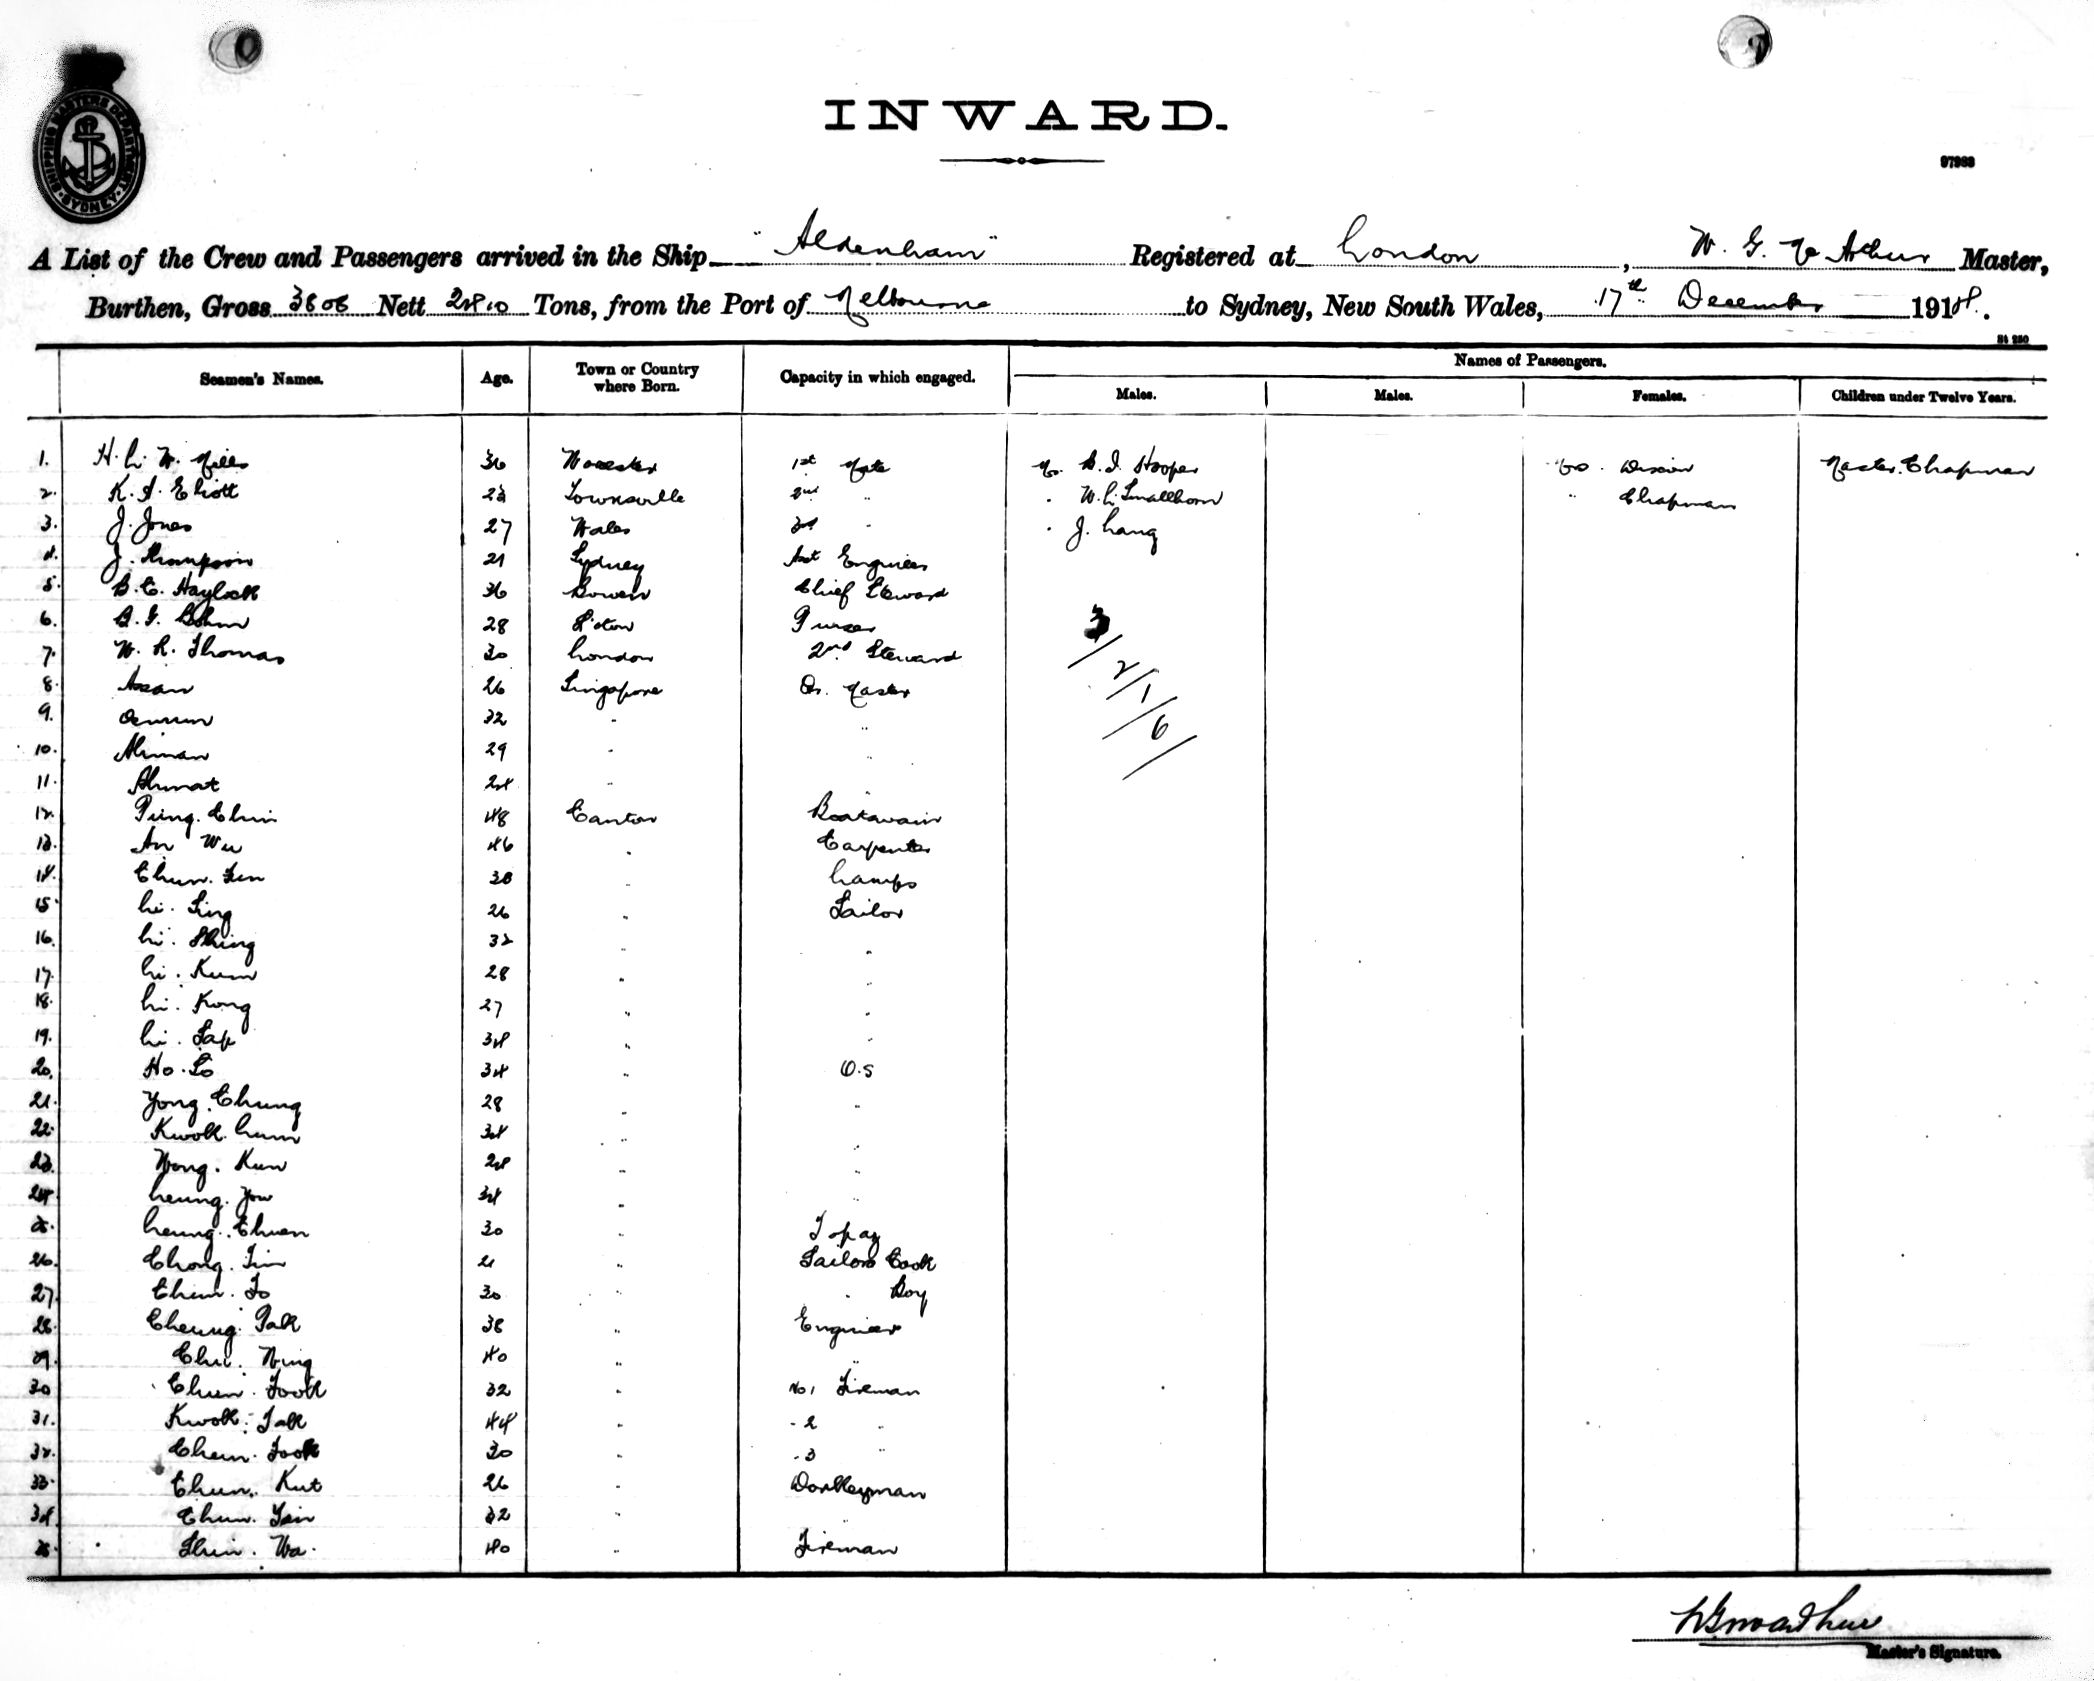 SHIPPING MASTERS DEPARTMENT SYDNEY
INWARD.
97988
A List of the Crew and Passengers arrived in the Ship "Aldenham" Registered at London, W. G. McArthur Master,
Burthen, Gross 3808 Nett 2410 Tons, from the Port of Melbourne to Sydney, New South Wales, 17th December 1918.
St 250
Seamen's Names. Age. Town or Country where Born. Capacity in which engaged. Names of Passengers.
Males. Males. Females. Children under Twelve Years.
1. H. L. W. Mills 36 Worcester 1st Mate Mr. Hooper Dixon Master Chapman
2. K. A. Eliott 23 Townsville 2nd " " W. L. Smallhorn " Chapman
3. J. Jones 27 Wales 3rd " " J. Lang
4. J. Thompson 21 Sydney Ast Engineer
5. B. E. Haylock 36 Bowen Chief Steward
6. 28 Picton Purser 3/
7. W. R. Thomas 30 London 2nd Steward 2/1/
8. Assan 26 Singapore Qr. Master 6/
9. Osman 32 " "
10. Aliman 29 " "
11. Ahmat 24 " "
12. Pung. Chin 48 Canton Boatswain
13. An Wu 46 " Carpenter
14. Chun. 38 " Lamps
15. Li. Sing 26 " Sailor
16. Li. Shing 32 " "
17. Li. Kum 28 " "
18. Li. Kong 27 " "
19. Li. Sap 34 " "
20. Ho. So 34 " O.S
21. Yong. Chung 28 " "
22. Kwok. Lum 34 " "
23. Wong. Kun 24 " "
24. Leung. You 34 " "
25. Leung. Chuen 30 " Topaz
26. Chong. Tim 21 " Sailors Cook
27. Chun. To 30 " " Boy
28. Cheung. Pak 38 " Engineer
29. Chu. Wing 40 " "
30 Chun. Fook 32 " No 1 Fireman
31. Kwok. Tak 44 " " 2 "
32. Chan. Fook 30 " " 3 "
33. Chun. Kut 26 " Donkeyman
34. Chun. Yin 32 " "
35. Shin. Wa. 40 " Fireman
W G McArthur
Master's Signature.